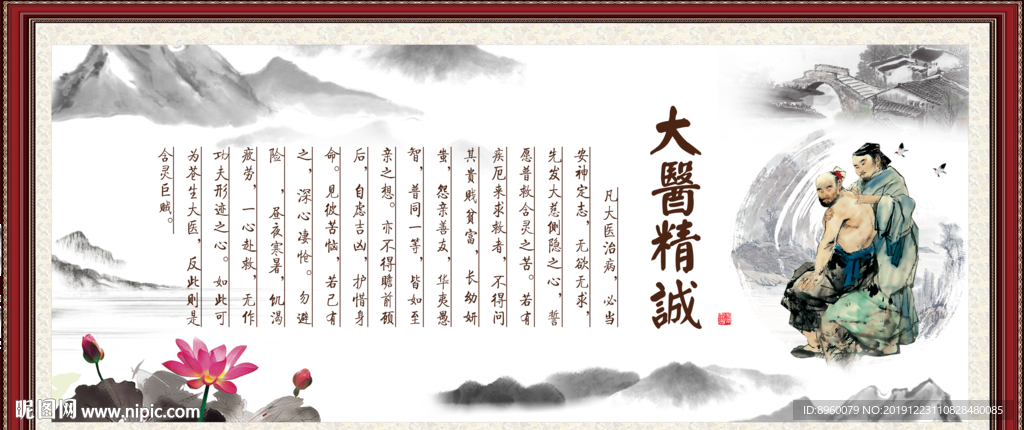 大醫精誠
凡大医治病，必当
安神定志，无欲无求，
先发大慈恻隐之心，誓
愿普救含灵之苦。若有
疾厄来求救者，不得问
其贵贱贫富，长幼妍
蚩，怨亲善友，华夷愚
智，普同一等，皆如至
亲之想。亦不得瞻前顾
后，自虑吉凶，护惜身
命。见彼苦恼，若己有
之，深心凄怆。勿避
险，昼夜寒暑，饥渴
疲劳，一心赴救，无作
功夫形迹之心。如此可
为苍生大医，反此则是
含灵巨贼。
昵图网 www.nipic.com
ID:8960079 NO:20191223110828480085